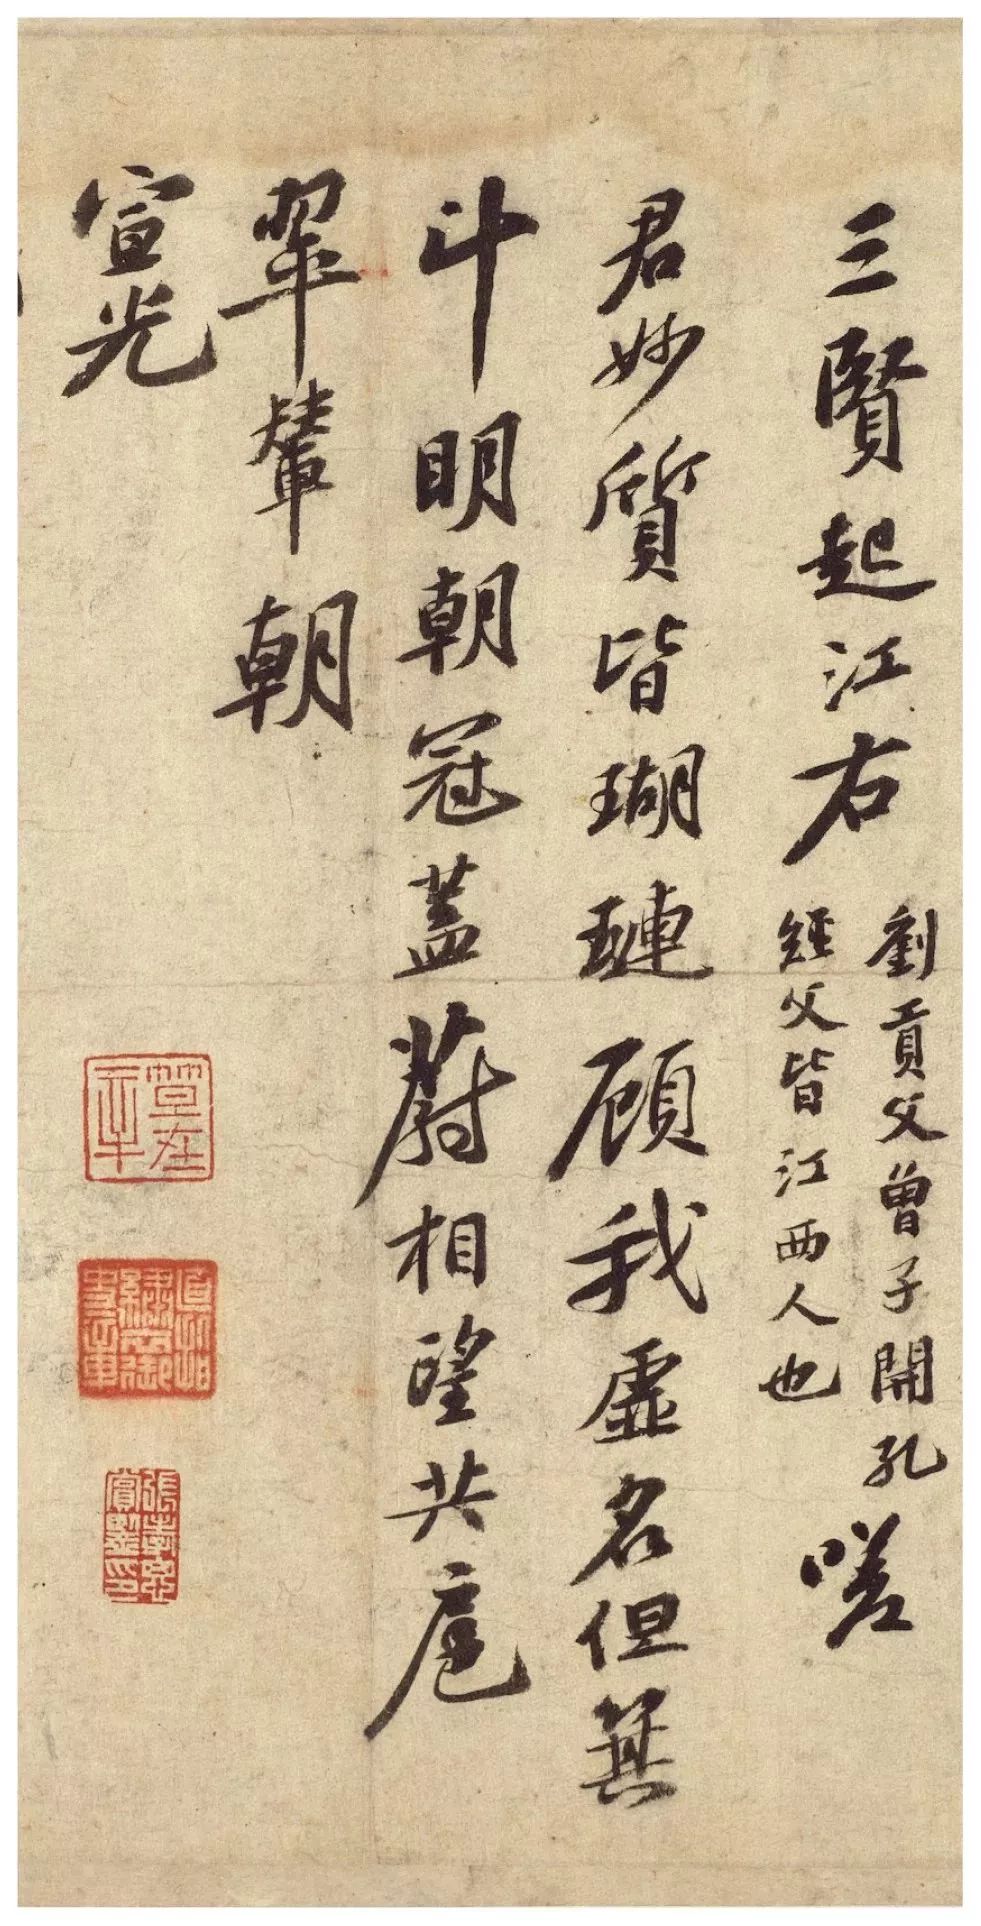 三賢起江右
劉貢父曾子開孔
經父皆江西人也
嗟
君妙質皆瑚璉顧我虛名但箕
斗明朝冠蓋蔚相望共扈
翠輦朝
宣光
張孝思
賞鑒印